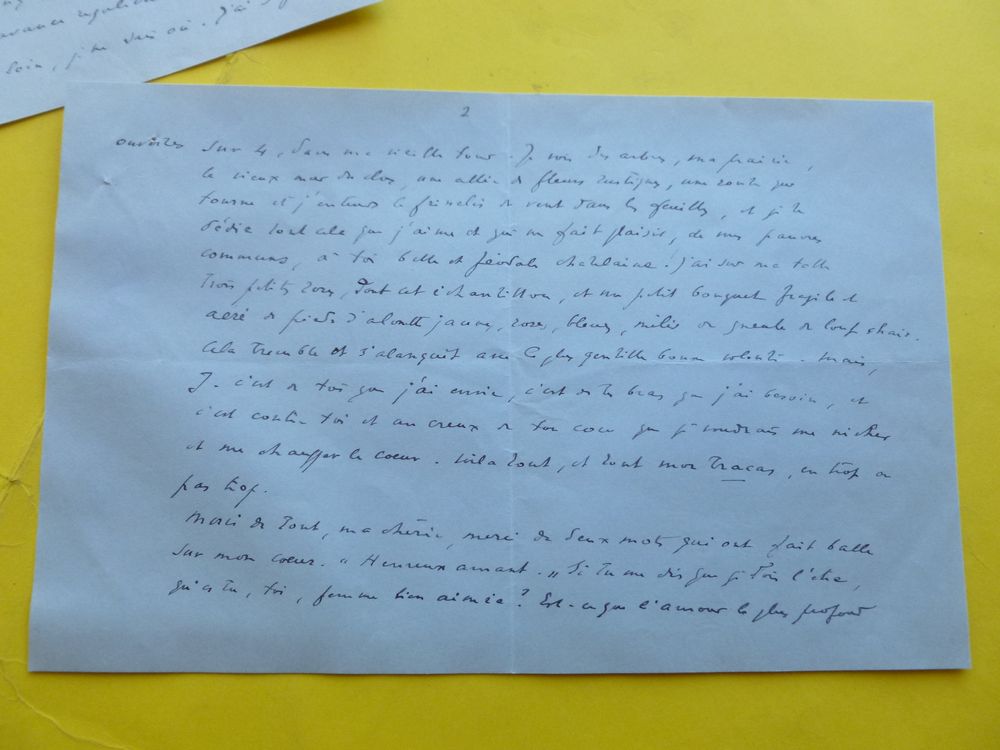 avance
loin, je ne sais où. J'ai
2
ouvertes sur 4, dans ma vieille tour. Je vois des arbres, ma prairie,
le vieux mur du clos, une allée de fleurs rustiques, une route qui
tourne et j'entends le frisselis du vent dans les feuilles, et je te
dédie tout cela que j'aime et qui me fait plaisir, de mes pauvres
communs, à toi belle et féodale châtelaine. J'ai sur ma table
trois petits zoves, dont cet échantillon, et un petit bouquet fragile et
aéré de pieds d'alouette jaunes, roses, bleus, mêlés de gueule de loup
Cela tremble et s'alanguit avec la plus gentille bonne volonté. Mais,
J. c'est de toi que j'ai envie, c'est de tes bras que j'ai besoin, et
c'est contre toi et au creux de ton cou que je voudrais me nicher
et me chauffer le coeur. Voilà tout, et tout mon tracas, en trop ou
pas trop.
Merci de tout, ma chérie, merci de deux mots qui ont fait balle
sur mon coeur. "Heureux amant." Si tu me dis que je dois l'être,
qu'es tu, toi, femme bien aimée? Est-ce que l'amour le plus profond